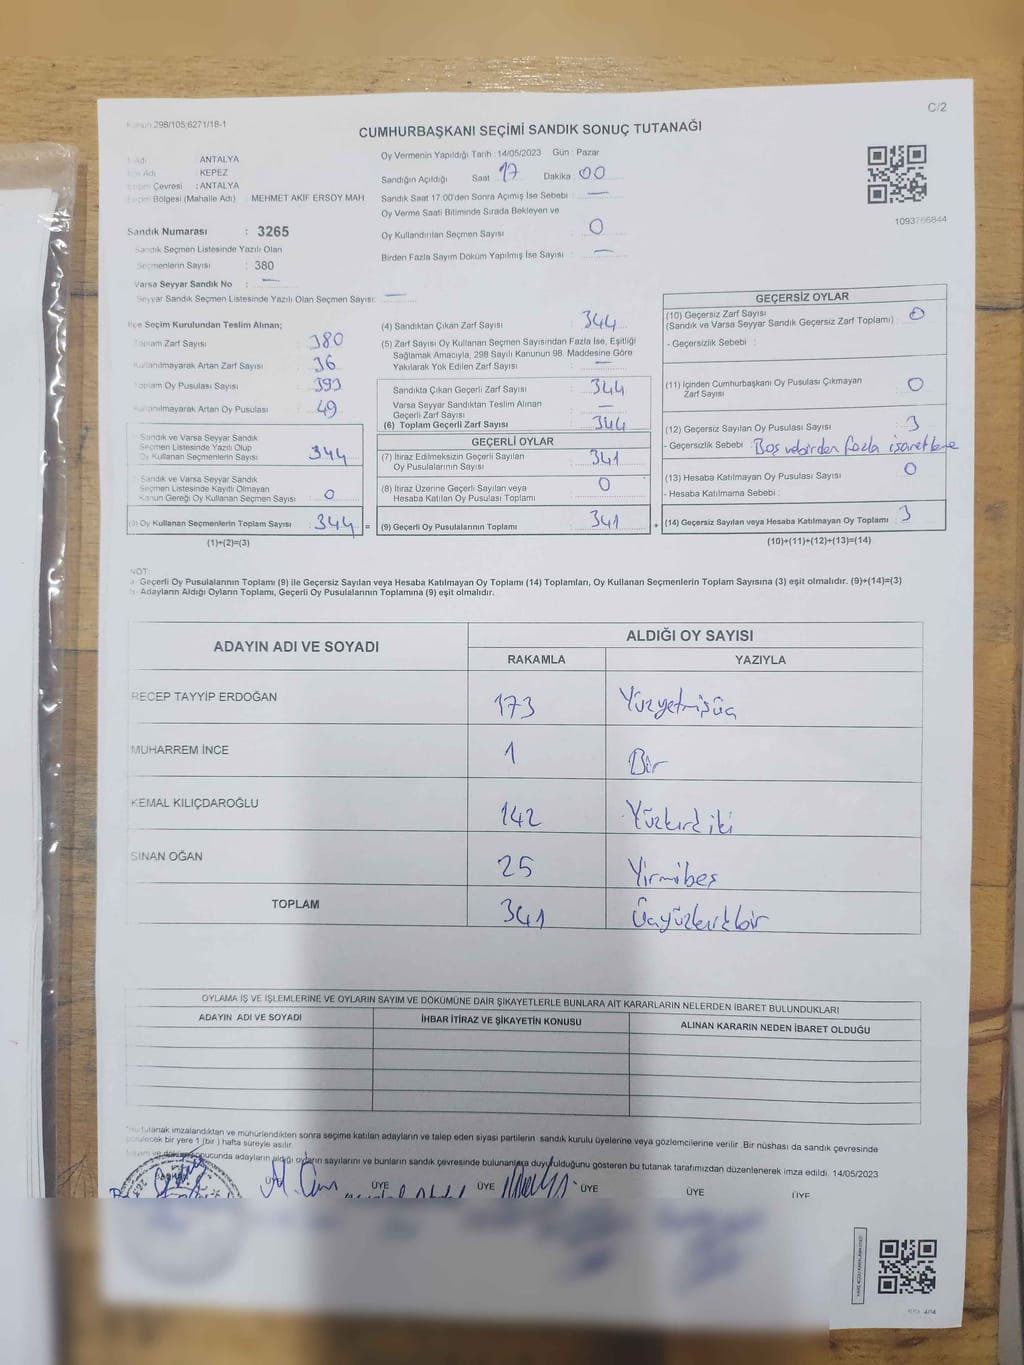 C/2
298/105;6271/18-1
CUMHURBAŞKANI SEÇİMİ SANDIK SONUÇ TUTANAĞI
1093766844
ANTALYA
KEPEZ
Çevresi : ANTALYA
Bölgesi (Mahalle Adı) MEHMET AKİF ERSOY MAH.
Oy Vermenin Yapıldığı Tarih : 14/05/2023 Gün : Pazar
Sandığın Açıldığı Saat 17 Dakika 00
Sandık Saat 17:00'den Sonra Açımış İse Sebebi : —
Oy Verme Saati Bitiminde Sırada Bekleyen ve
Oy Kullandırılan Seçmen Sayısı : 0
Birden Fazla Sayım Döküm Yapılmış İse Sayısı : —
Sandık Numarası : 3265
Sandık Seçmen Listesinde Yazılı Olan
Seçmenlerin Sayısı : 380
Varsa Seyyar Sandık No : —
Seyyar Sandık Seçmen Listesinde Yazılı Olan Seçmen Sayısı: —
İlçe Seçim Kurulundan Teslim Alınan;
Toplam Zarf Sayısı : 380
Kullanılmayarak Artan Zarf Sayısı : 36
Toplam Oy Pusulası Sayısı : 393
Kullanılmayarak Artan Oy Pusulası : 49
Sandık ve Varsa Seyyar Sandık
Seçmen Listesinde Yazılı Olup
Oy Kullanan Seçmenlerin Sayısı : 344
Sandık ve Varsa Seyyar Sandık
Seçmen Listesinde Kayıtlı Olmayan
Kanun Gereği Oy Kullanan Seçmen Sayısı : 0
(3) Oy Kullanan Seçmenlerin Toplam Sayısı : 344 =
(1)+(2)=(3)
(4) Sandıktan Çıkan Zarf Sayısı : 344
(5) Zarf Sayısı Oy Kullanan Seçmen Sayısından Fazla İse, Eşitliği
Sağlamak Amacıyla, 298 Sayılı Kanunun 98. Maddesine Göre
Yakılarak Yok Edilen Zarf Sayısı : —
Sandıkta Çıkan Geçerli Zarf Sayısı : 344
Varsa Seyyar Sandıktan Teslim Alınan
Geçerli Zarf Sayısı : —
(6) Toplam Geçerli Zarf Sayısı : 344
GEÇERLİ OYLAR
(7) İtiraz Edilmeksizin Geçerli Sayılan
Oy Pusulalarının Sayısı : 341
(8) İtiraz Üzerine Geçerli Sayılan veya
Hesaba Katılan Oy Pusulası Toplamı : 0
(9) Geçerli Oy Pusulalarının Toplamı : 341 +
GEÇERSİZ OYLAR
(10) Geçersiz Zarf Sayısı
(Sandık ve Varsa Seyyar Sandık Geçersiz Zarf Toplamı) : 0
- Geçersizlik Sebebi :
(11) İçinden Cumhurbaşkanı Oy Pusulası Çıkmayan
Zarf Sayısı : 0
(12) Geçersiz Sayılan Oy Pusulası Sayısı : 3
- Geçersizlik Sebebi : Boş ve birden fazla işaretleme
(13) Hesaba Katılmayan Oy Pusulası Sayısı : 0
- Hesaba Katılmama Sebebi :
(14) Geçersiz Sayılan veya Hesaba Katılmayan Oy Toplamı : 3
(10)+(11)+(12)+(13)=(14)
NOT:
a- Geçerli Oy Pusulalarının Toplamı (9) ile Geçersiz Sayılan veya Hesaba Katılmayan Oy Toplamı (14) Toplamları, Oy Kullanan Seçmenlerin Toplam Sayısına (3) eşit olmalıdır. (9)+(14)=(3)
b- Adayların Aldığı Oyların Toplamı, Geçerli Oy Pusulalarının Toplamına (9) eşit olmalıdır.
ADAYIN ADI VE SOYADI
ALDIĞI OY SAYISI
RAKAMLA YAZIYLA
RECEP TAYYİP ERDOĞAN 173 Yüzyetmişüç
MUHARREM İNCE 1 Bir
KEMAL KILIÇDAROĞLU 142 Yüzkırkiki
SİNAN OĞAN 25 Yirmibeş
TOPLAM 341 Üçyüzkırkbir
OYLAMA İŞ VE İŞLEMLERİNE VE OYLARIN SAYIM VE DÖKÜMÜNE DAİR ŞİKAYETLERLE BUNLARA AİT KARARLARIN NELERDEN İBARET BULUNDUKLARI
ADAYIN ADI VE SOYADI İHBAR İTİRAZ VE ŞİKAYETİN KONUSU ALINAN KARARIN NEDEN İBARET OLDUĞU
tutanak imzalandıktan ve mühürlendikten sonra seçime katılan adayların ve talep eden siyasi partilerin sandık kurulu üyelerine veya gözlemcilerine verilir. Bir nüshası da sandık çevresinde
bir yere 1 (bir) hafta süreyle asılır.
sonucunda adayların aldığı oyların sayılarını ve bunların sandık çevresinde bulunanlara duyurulduğunu gösteren bu tutanak tarafımızdan düzenlenerek imza edildi. 14/05/2023
ÜYE ÜYE ÜYE ÜYE ÜYE ÜYE